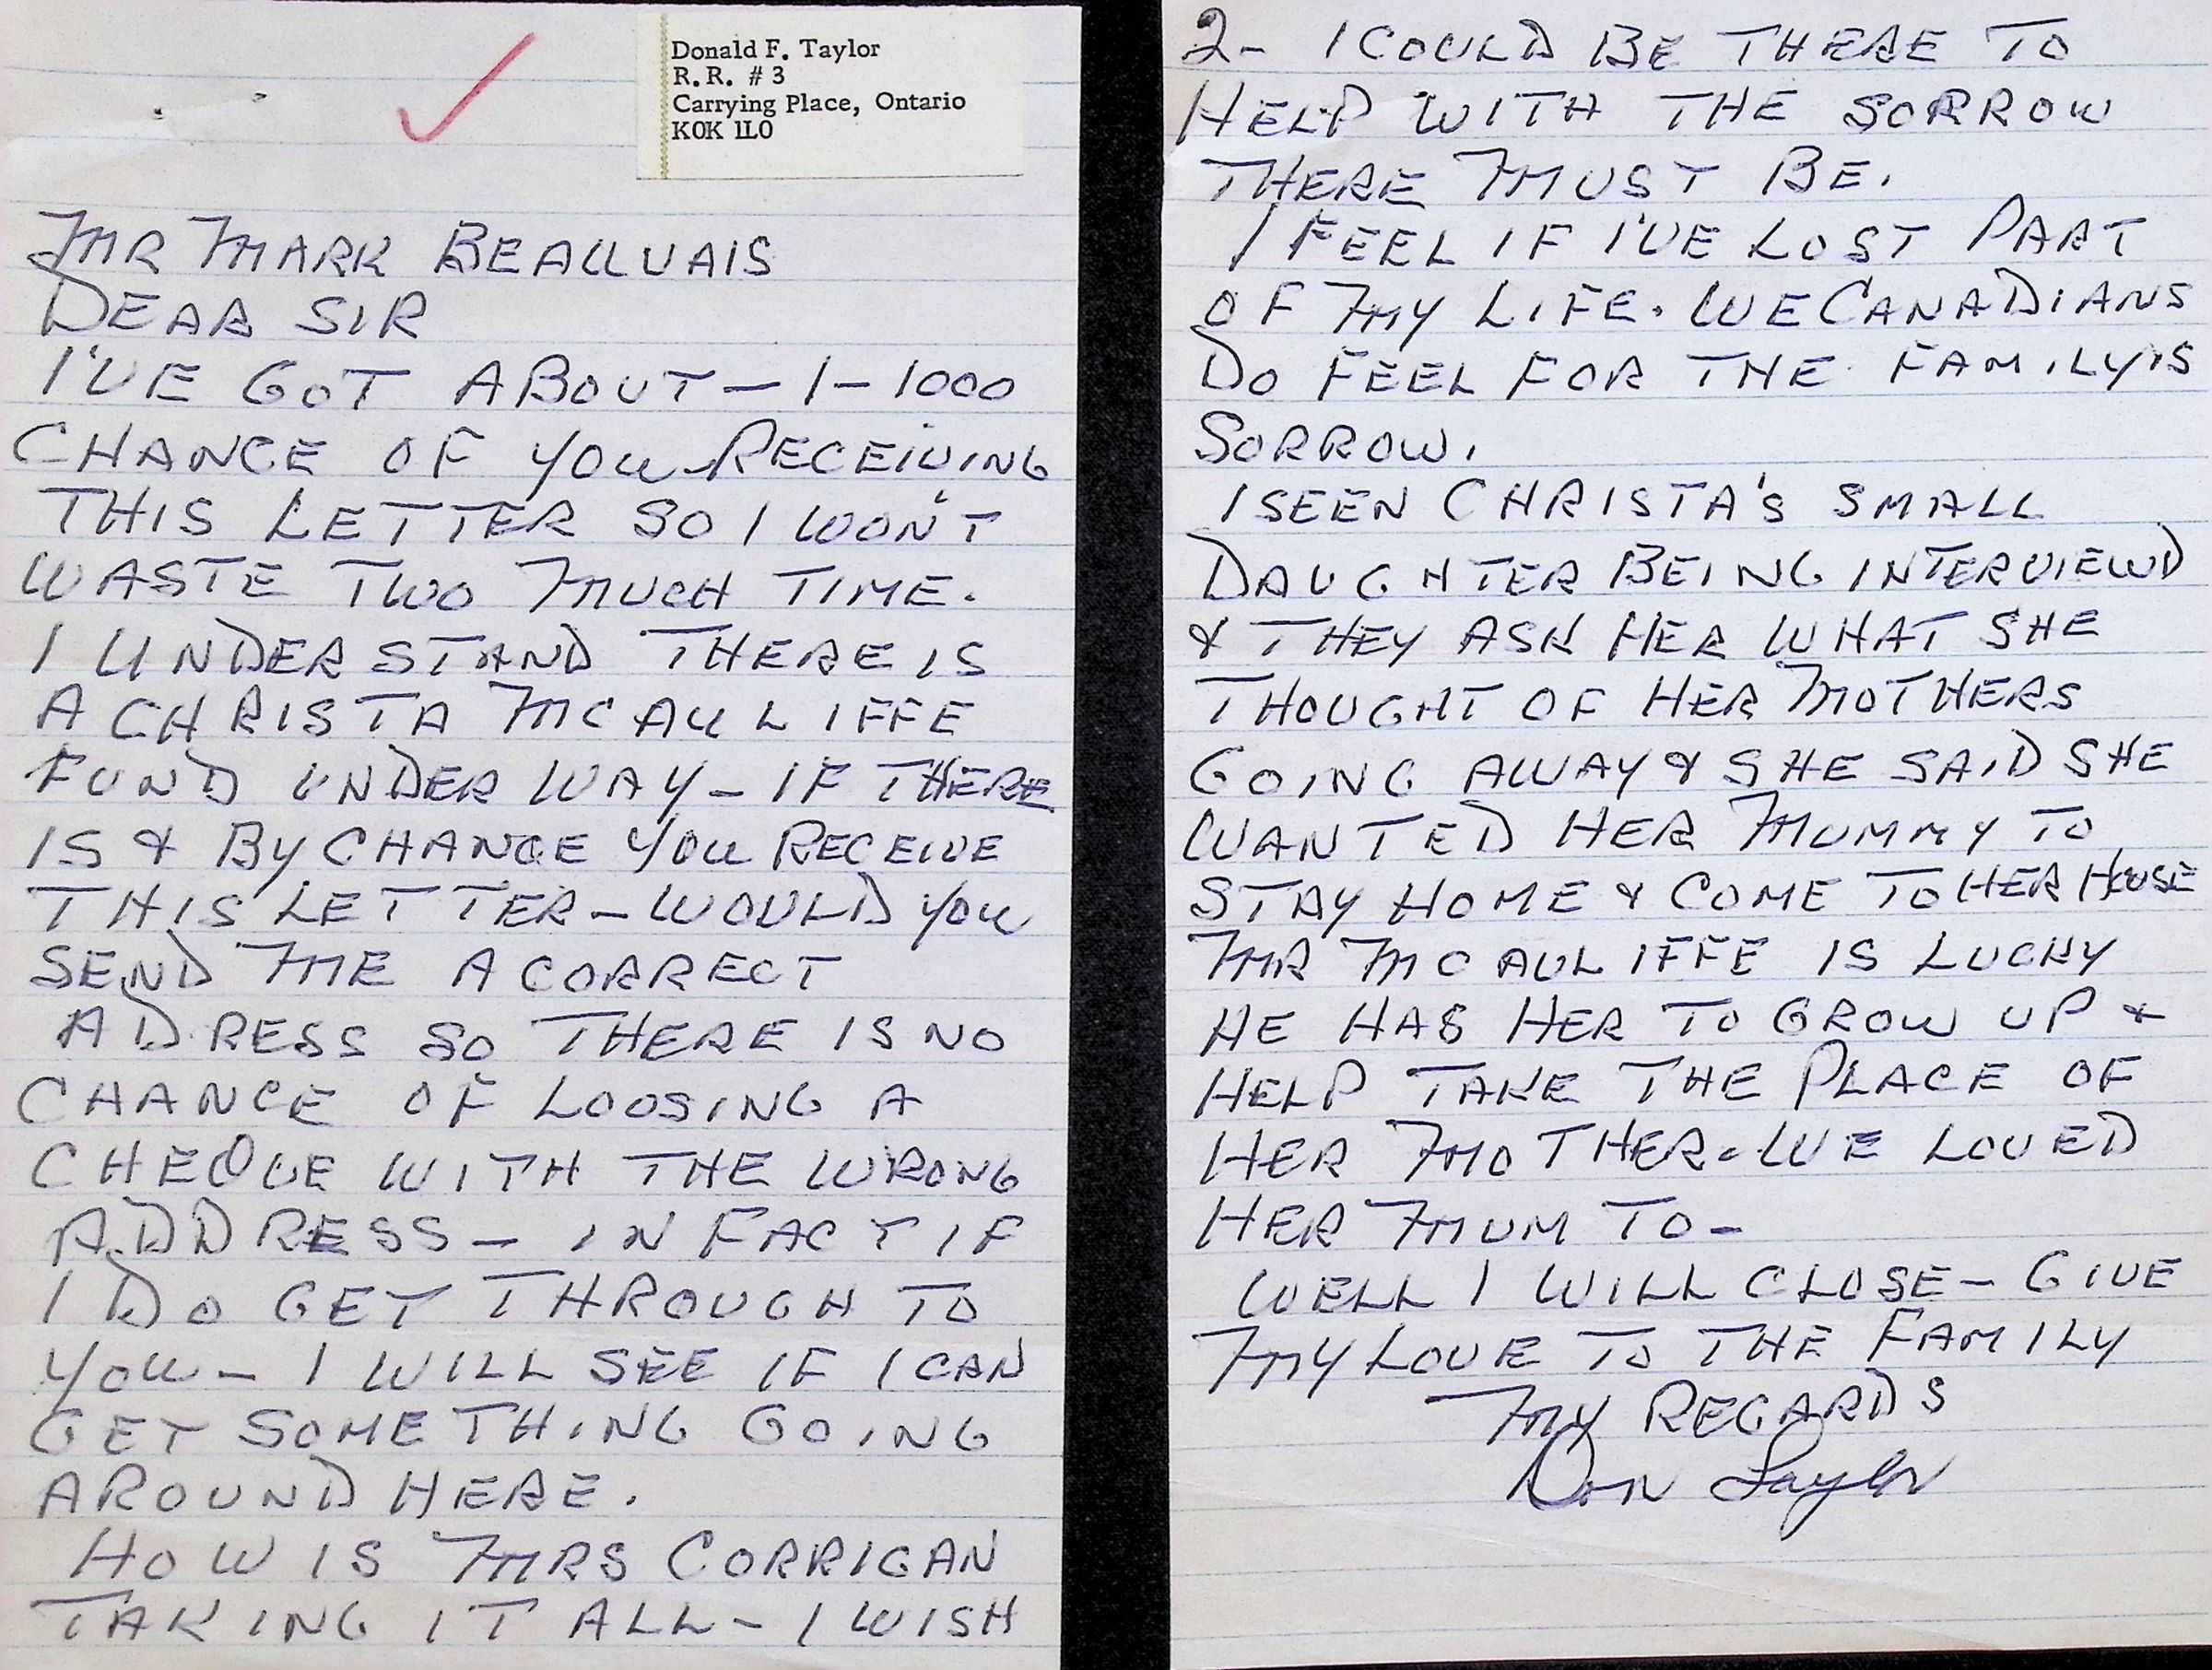 Donald F. Taylor
R.R. # 3
Carrying Place, Ontario
K0K 1L0
MR MARK BEAUVAIS
DEAR SIR
I'VE GOT ABOUT – 1 – 1000
CHANCE OF YOU RECEIVING
THIS LETTER SO I WON'T
WASTE TWO MUCH TIME.
I UNDERSTAND THERE IS
A CHRISTA MCAULIFFE
FUND UNDER WAY – IF THERE
IS & BY CHANCE YOU RECEIVE
THIS LETTER – WOULD YOU
SEND ME A CORRECT
ADRESS SO THERE IS NO
CHANCE OF LOOSING A
CHEQUE WITH THE WRONG
ADDRESS – IN FACT IF
I DO GET THROUGH TO
YOU – I WILL SEE IF I CAN
GET SOMETHING GOING
AROUND HERE.
HOW IS MRS CORRIGAN
TAKING IT ALL – I WISH
2- I COULD BE THERE TO
HELP WITH THE SORROW
THERE MUST BE.
I FEEL IF I'VE LOST PART
OF MY LIFE. WE CANADIANS
DO FEEL FOR THE FAMILY'S
SORROW.
I SEEN CHRISTA'S SMALL
DAUGHTER BEING INTERVIEWD
& THEY ASK HER WHAT SHE
THOUGHT OF HER MOTHERS
GOING AWAY & SHE SAID SHE
WANTED HER MUMMY TO
STAY HOME & COME TO HER HOUSE
MR MCAULIFFE IS LUCKY
HE HAS HER TO GROW UP &
HELP TAKE THE PLACE OF
HER MOTHER. WE LOVED
HER MUM TO –
WELL I WILL CLOSE – GIVE
MY LOVE TO THE FAMILY
MY REGARDS
Don Taylor